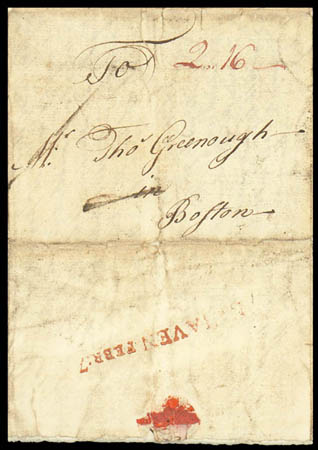 To
2..16
Mr. Thos Greenough
in
Boston
HAVEN FEBR:7